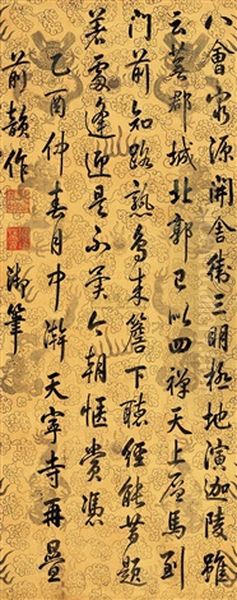 八會窮源開舍衛三明極地演迦陵雖
云蕪郡城北郭已似四禪天上層馬到
門前知路熟鳥來簷下聽經能昔題
著處逢迎是不笑今朝愜賞憑
乙酉仲春月中澣天寧寺再疊
前韻作 御筆